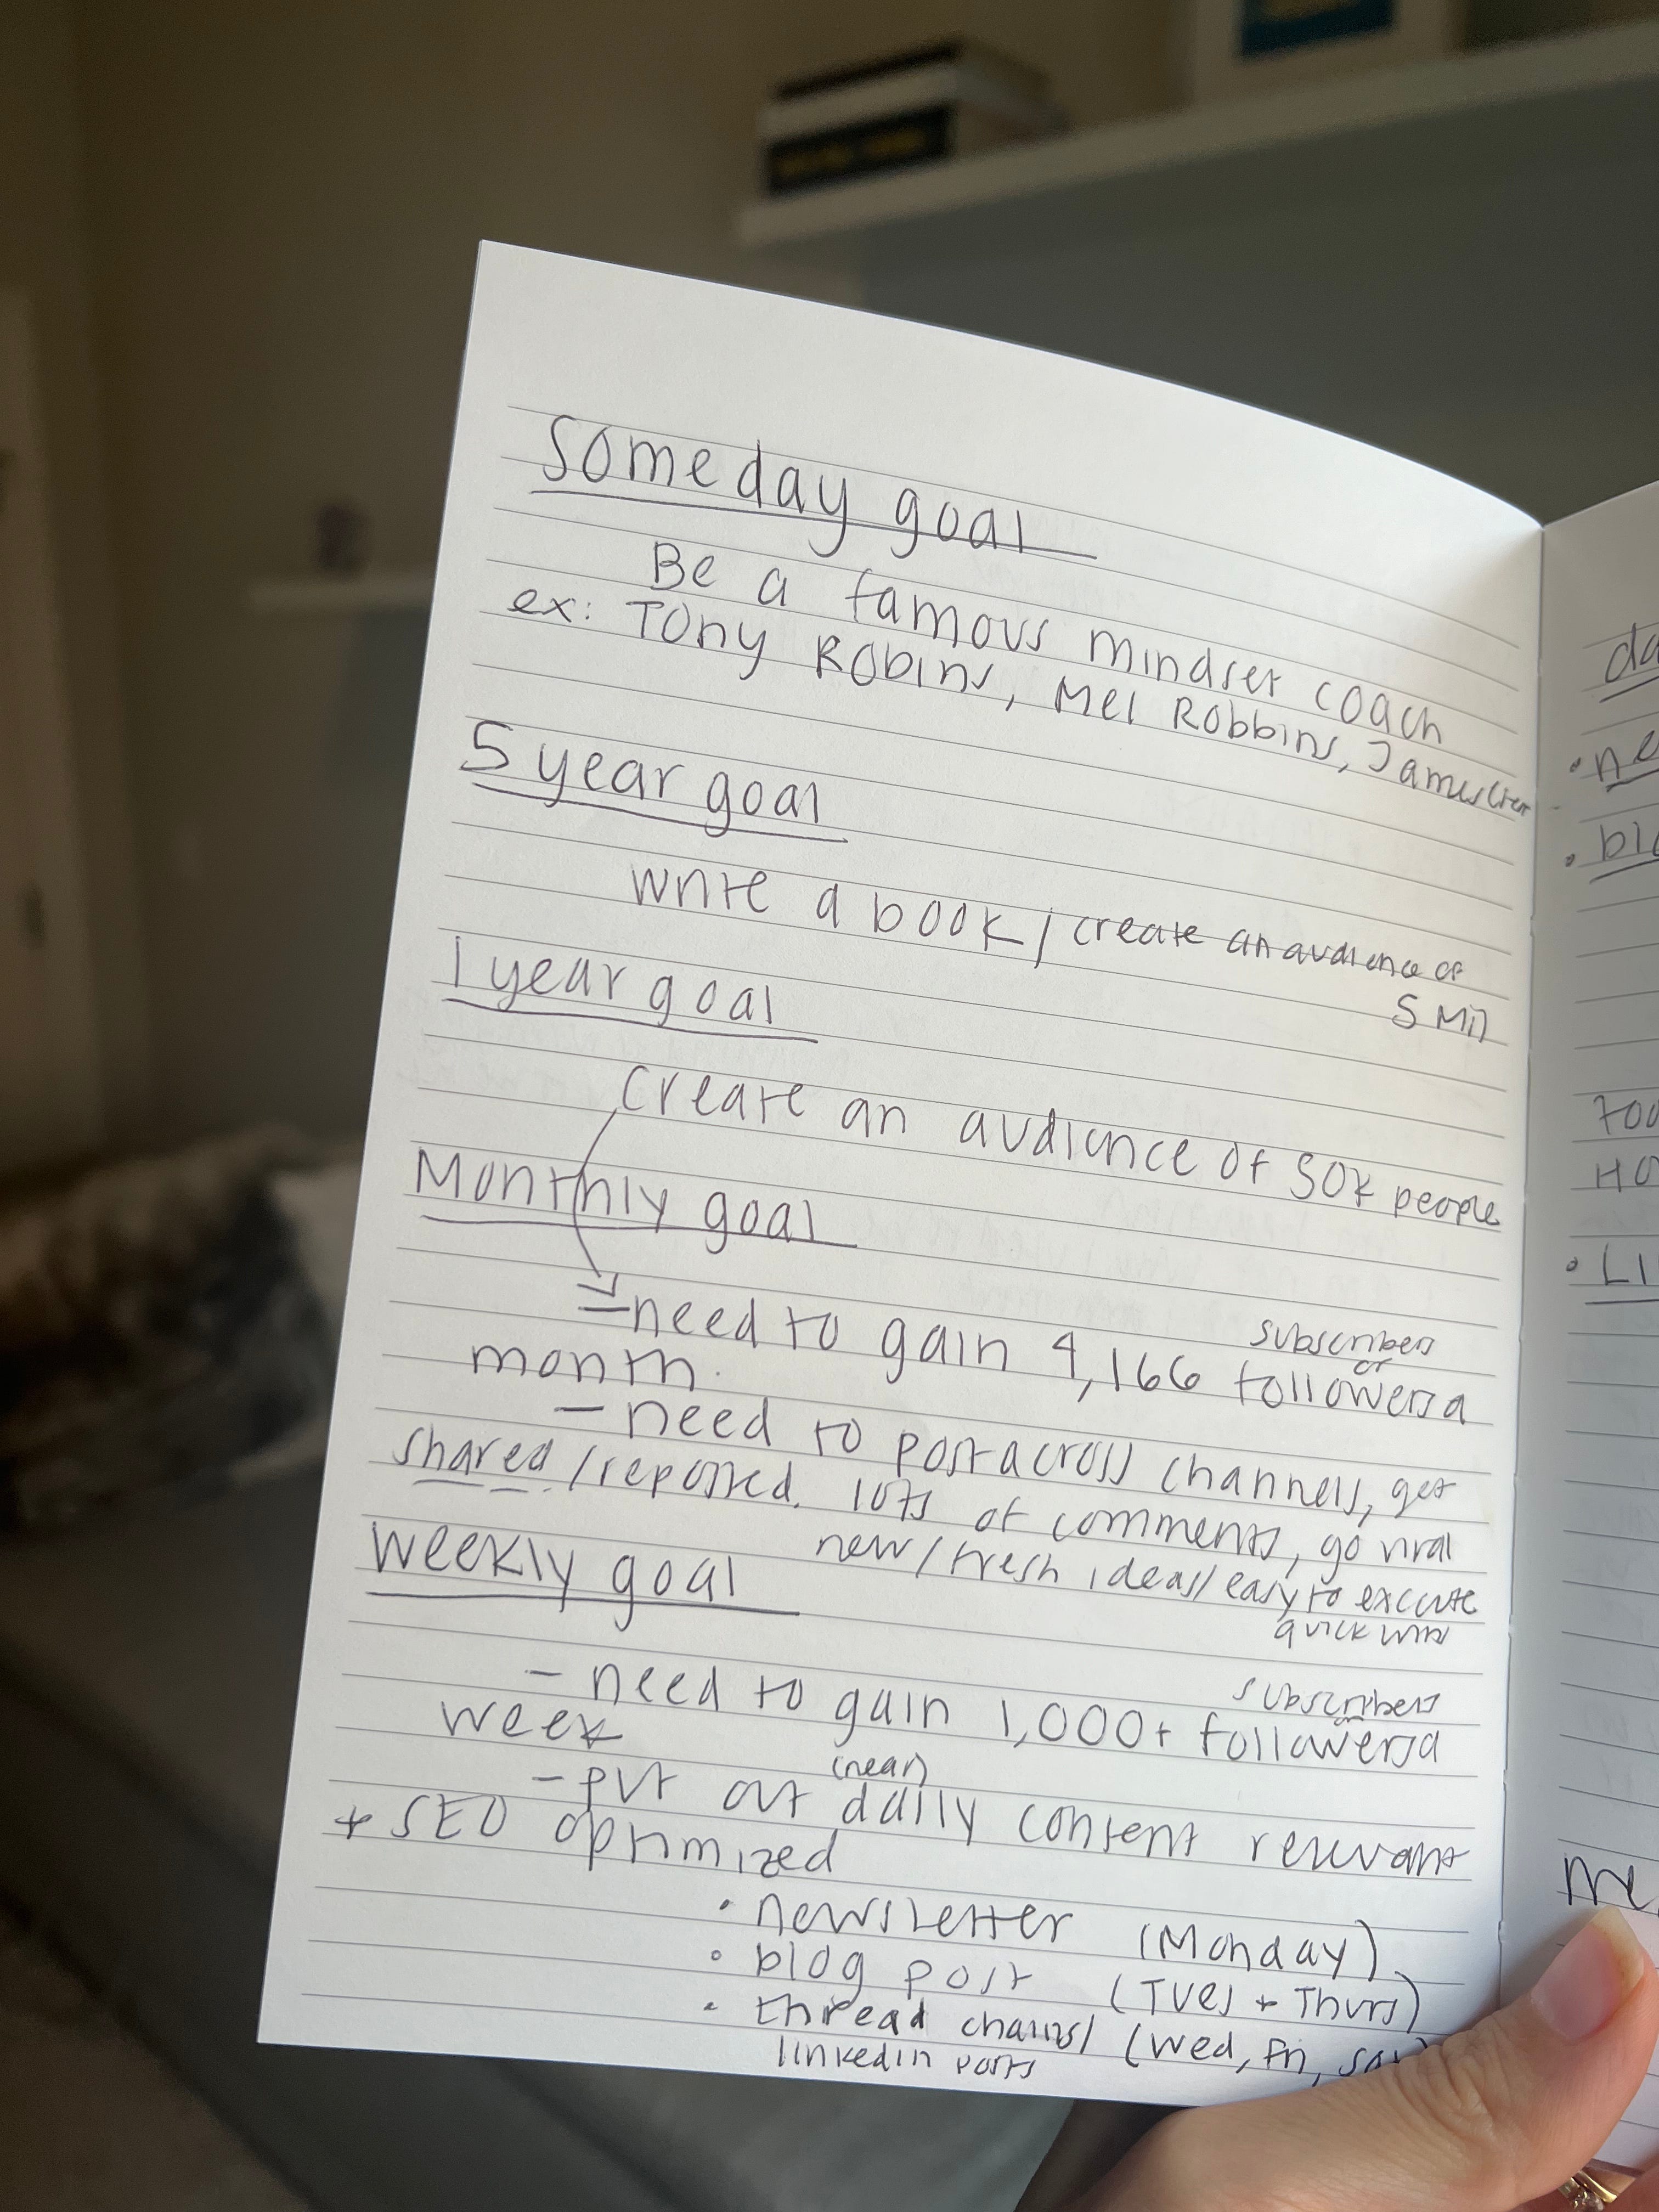 someday goal
Be a famous mindset coach
ex: Tony Robins, Mel Robbins, James Clear
5 year goal
write a book / create an audience of
5 Mil
1 year goal
create an audience of 50k people
Monthly goal
- need to gain 4,166 followers a
subscribers
or
month.
- need to post across channels, get
shared / reposted, lots of comments, go viral
new / fresh ideas / easy to execute
quick wins
weekly goal
- need to gain 1,000+ followers a
subscribers
or
week
- put out daily content relevant
(near)
+ SEO optimized
• newsletter (Monday)
• blog post (Tues + Thurs)
• thread chains / (Wed, Fri, Sat)
linkedin posts
da
• ne
• blo
foo
Ho
• LI
me